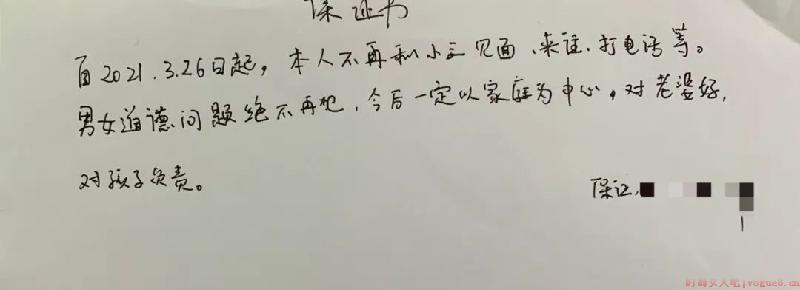 保证书
自2021.3.26日起，本人不再和小三见面、来往、打电话等。
男女道德问题绝不再犯，今后一定以家庭为中心，对老婆好，
对孩子负责。
保证
时尚女人吧|vogue8.cn